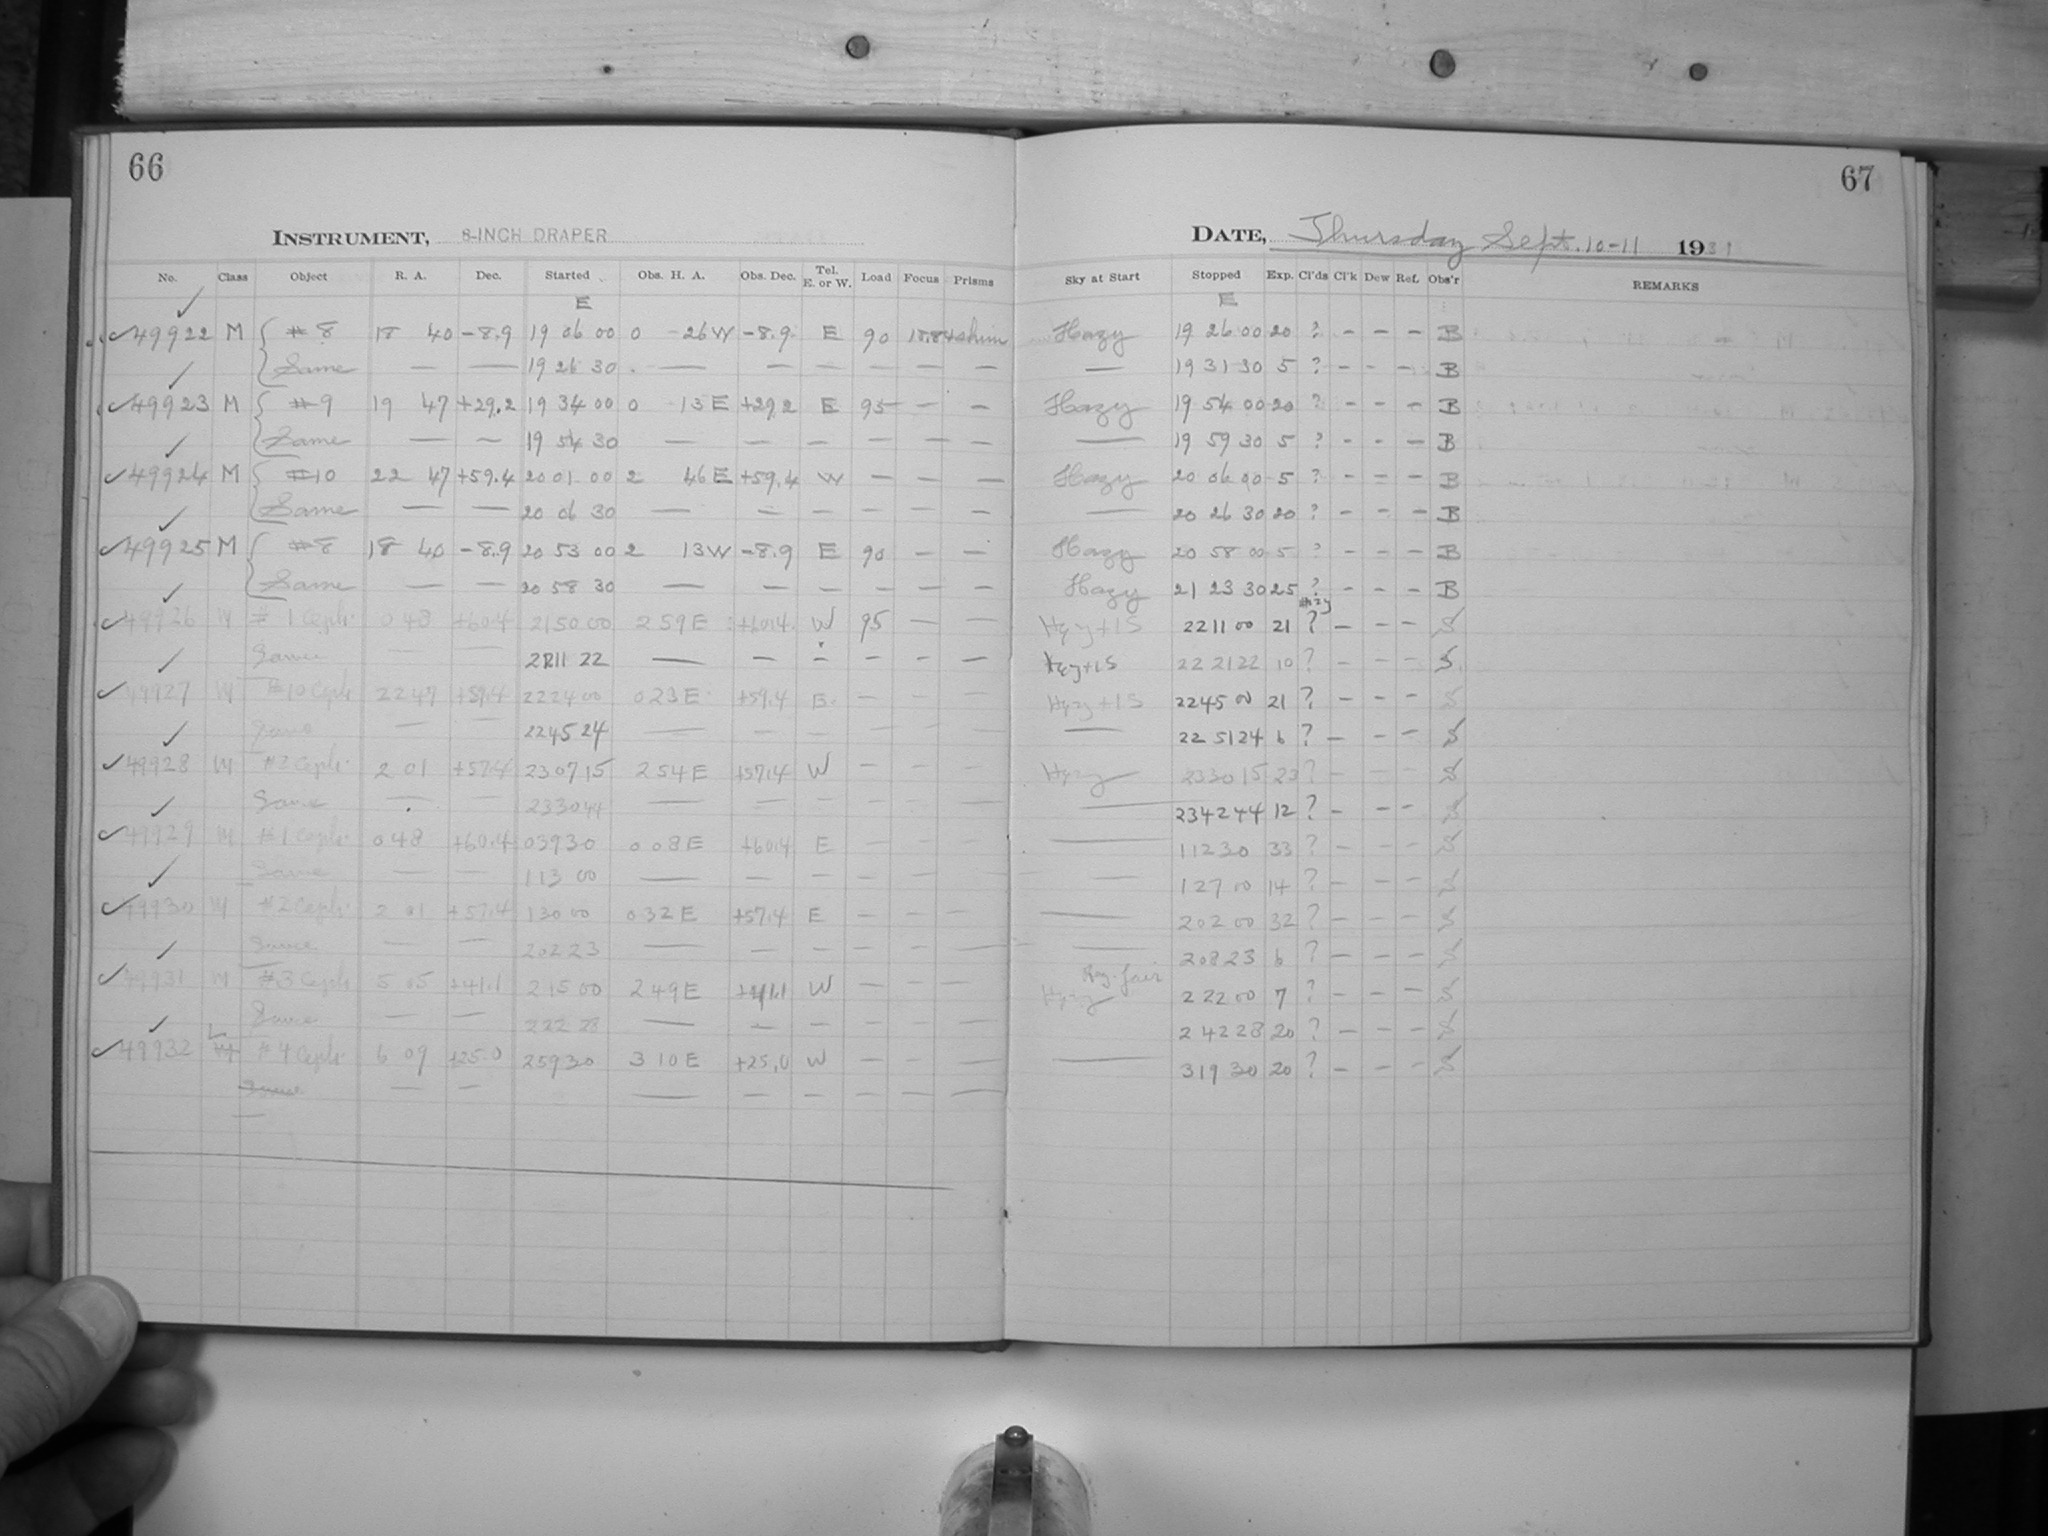 66
67
INSTRUMENT, 8-INCH DRAPER
DATE, Thursday Sept. 10-11 1931
No. Class Object R. A. Dec. Started Obs. H. A. Obs. Dec. Tel. E. or W. Load Focus Prisms Sky at Start Stopped Exp. Cl'ds Cl'k Dew Ref. Obs'r REMARKS
E E
✓49922 M #8 18 40 -8.9 19 06 00 0 26 W -8.9 E 90 shim Hazy 19 26 00 20 ? - - - B
✓ Same — — 19 26 30 — — — — — — — 19 31 30 5 ? - - - B
✓49923 M #9 19 47 +29.2 19 34 00 0 13 E +29.2 E 95 — — Hazy 19 54 00 20 ? - - - B
✓ Same — — 19 54 30 — — — — — — — 19 59 30 5 ? - - - B
✓49924 M #10 22 47 +59.4 20 01 00 2 46 E +59.4 W — — — Hazy 20 06 00 5 ? - - - B
✓ Same — — 20 06 30 — — — — — — — 20 26 30 20 ? - - - B
✓49925 M #8 18 40 -8.9 20 53 00 2 13 W -8.9 E 90 — — Hazy 20 58 00 5 ? - - - B
✓ Same — — 20 58 30 — — — — — — Hazy 21 23 30 25 ? - - - B
✓49926 M #1 Ceph. 0 48 +60.4 21 50 00 2 59 E +60.4 W 95 — — Hazy+1S 22 11 00 21 ? - - - S
✓ Same — — 22 11 22 — — — — — — Hazy+1S 22 21 22 10 ? - - - S
49927 M #10 Ceph 22 47 +59.4 22 24 00 0 23 E +59.4 E — — — Hazy+1S 22 45 00 21 ? - - - S
✓ Same — — 22 45 24 — — — — — — — 22 51 24 6 ? - - - S
✓49928 M #2 Ceph. 2 01 +57.4 23 07 15 2 54 E +57.4 W — — — Hazy 23 30 15 23 ? - - - S
✓ Same — — 23 30 44 — — — — — — — 23 42 44 12 ? - - - S
✓49929 M #1 Ceph. 0 48 +60.4 0 39 30 0 08 E +60.4 E — — — — 1 12 30 33 ? - - - S
✓ Same — — 1 13 00 — — — — — — — 1 27 00 14 ? - - - S
✓49930 M #2 Ceph. 2 01 +57.4 1 30 00 0 32 E +57.4 E — — — — 2 02 00 32 ? - - - S
✓ Same — — 2 02 23 — — — — — — — 2 08 23 6 ? - - - S
✓49931 M #3 Ceph 5 05 +41.1 2 15 00 2 49 E +41.1 W — — — Hazy fair 2 22 00 7 ? - - - S
✓ Same — — 2 22 28 — — — — — — 2 42 28 20 ? - - - S
✓49932 L #4 Ceph. 6 09 +25.0 2 59 30 3 10 E +25.0 W — — — — 3 19 30 20 ? - - - S
Same — — — — — — — —